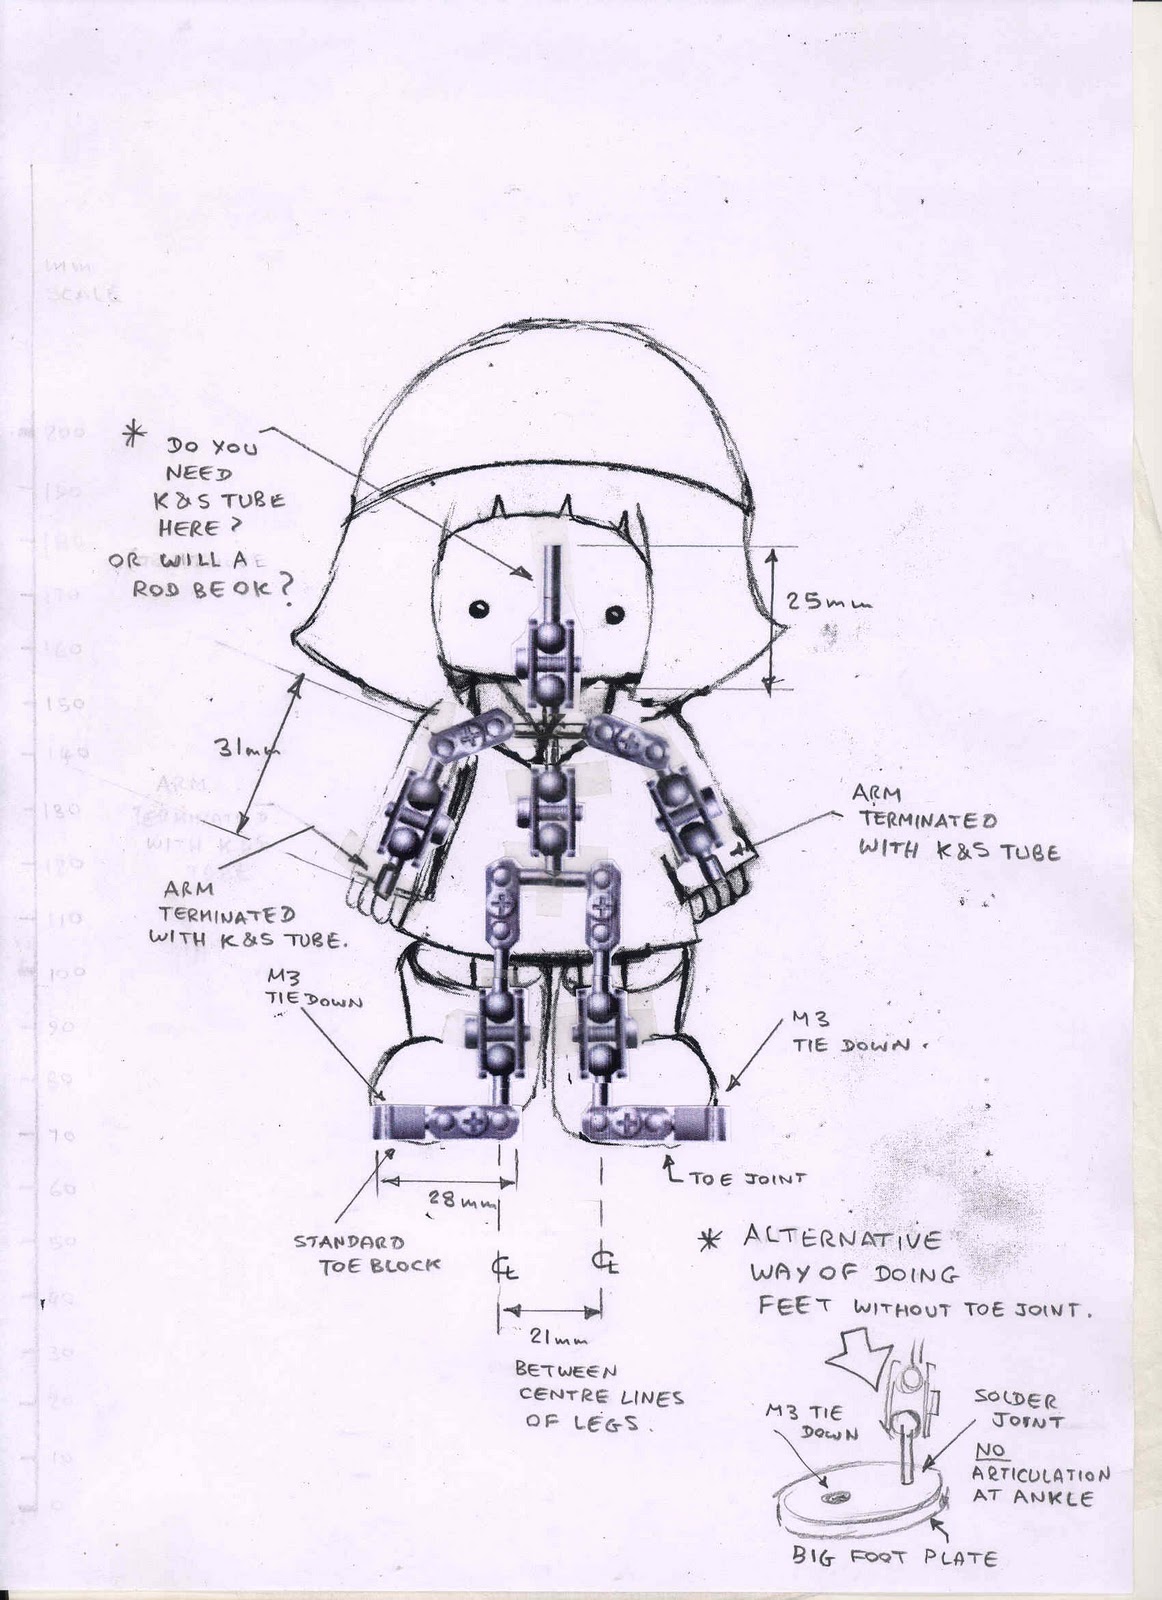 mm
SCALE
200
190
180
170
160
150
140
130
120
110
100
90
80
70
60
50
40
30
20
10
0
* DO YOU
NEED
K&S TUBE
HERE?
OR WILL A
ROD BE OK?
25mm
31mm
ARM
TERMINATED
WITH K&S TUBE
ARM
TERMINATED
WITH K&S TUBE.
M3
TIE DOWN
M3
TIE DOWN.
28mm
TOE JOINT
STANDARD
TOE BLOCK
℄
℄
21mm
BETWEEN
CENTRE LINES
OF LEGS.
* ALTERNATIVE
WAY OF DOING
FEET WITHOUT TOE JOINT.
M3 TIE
DOWN
SOLDER
JOINT
NO
ARTICULATION
AT ANKLE
BIG FOOT PLATE